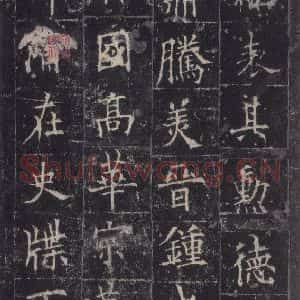 表其勳德
騰美鍾
國高華宗
在史牒
Shufawang.CN